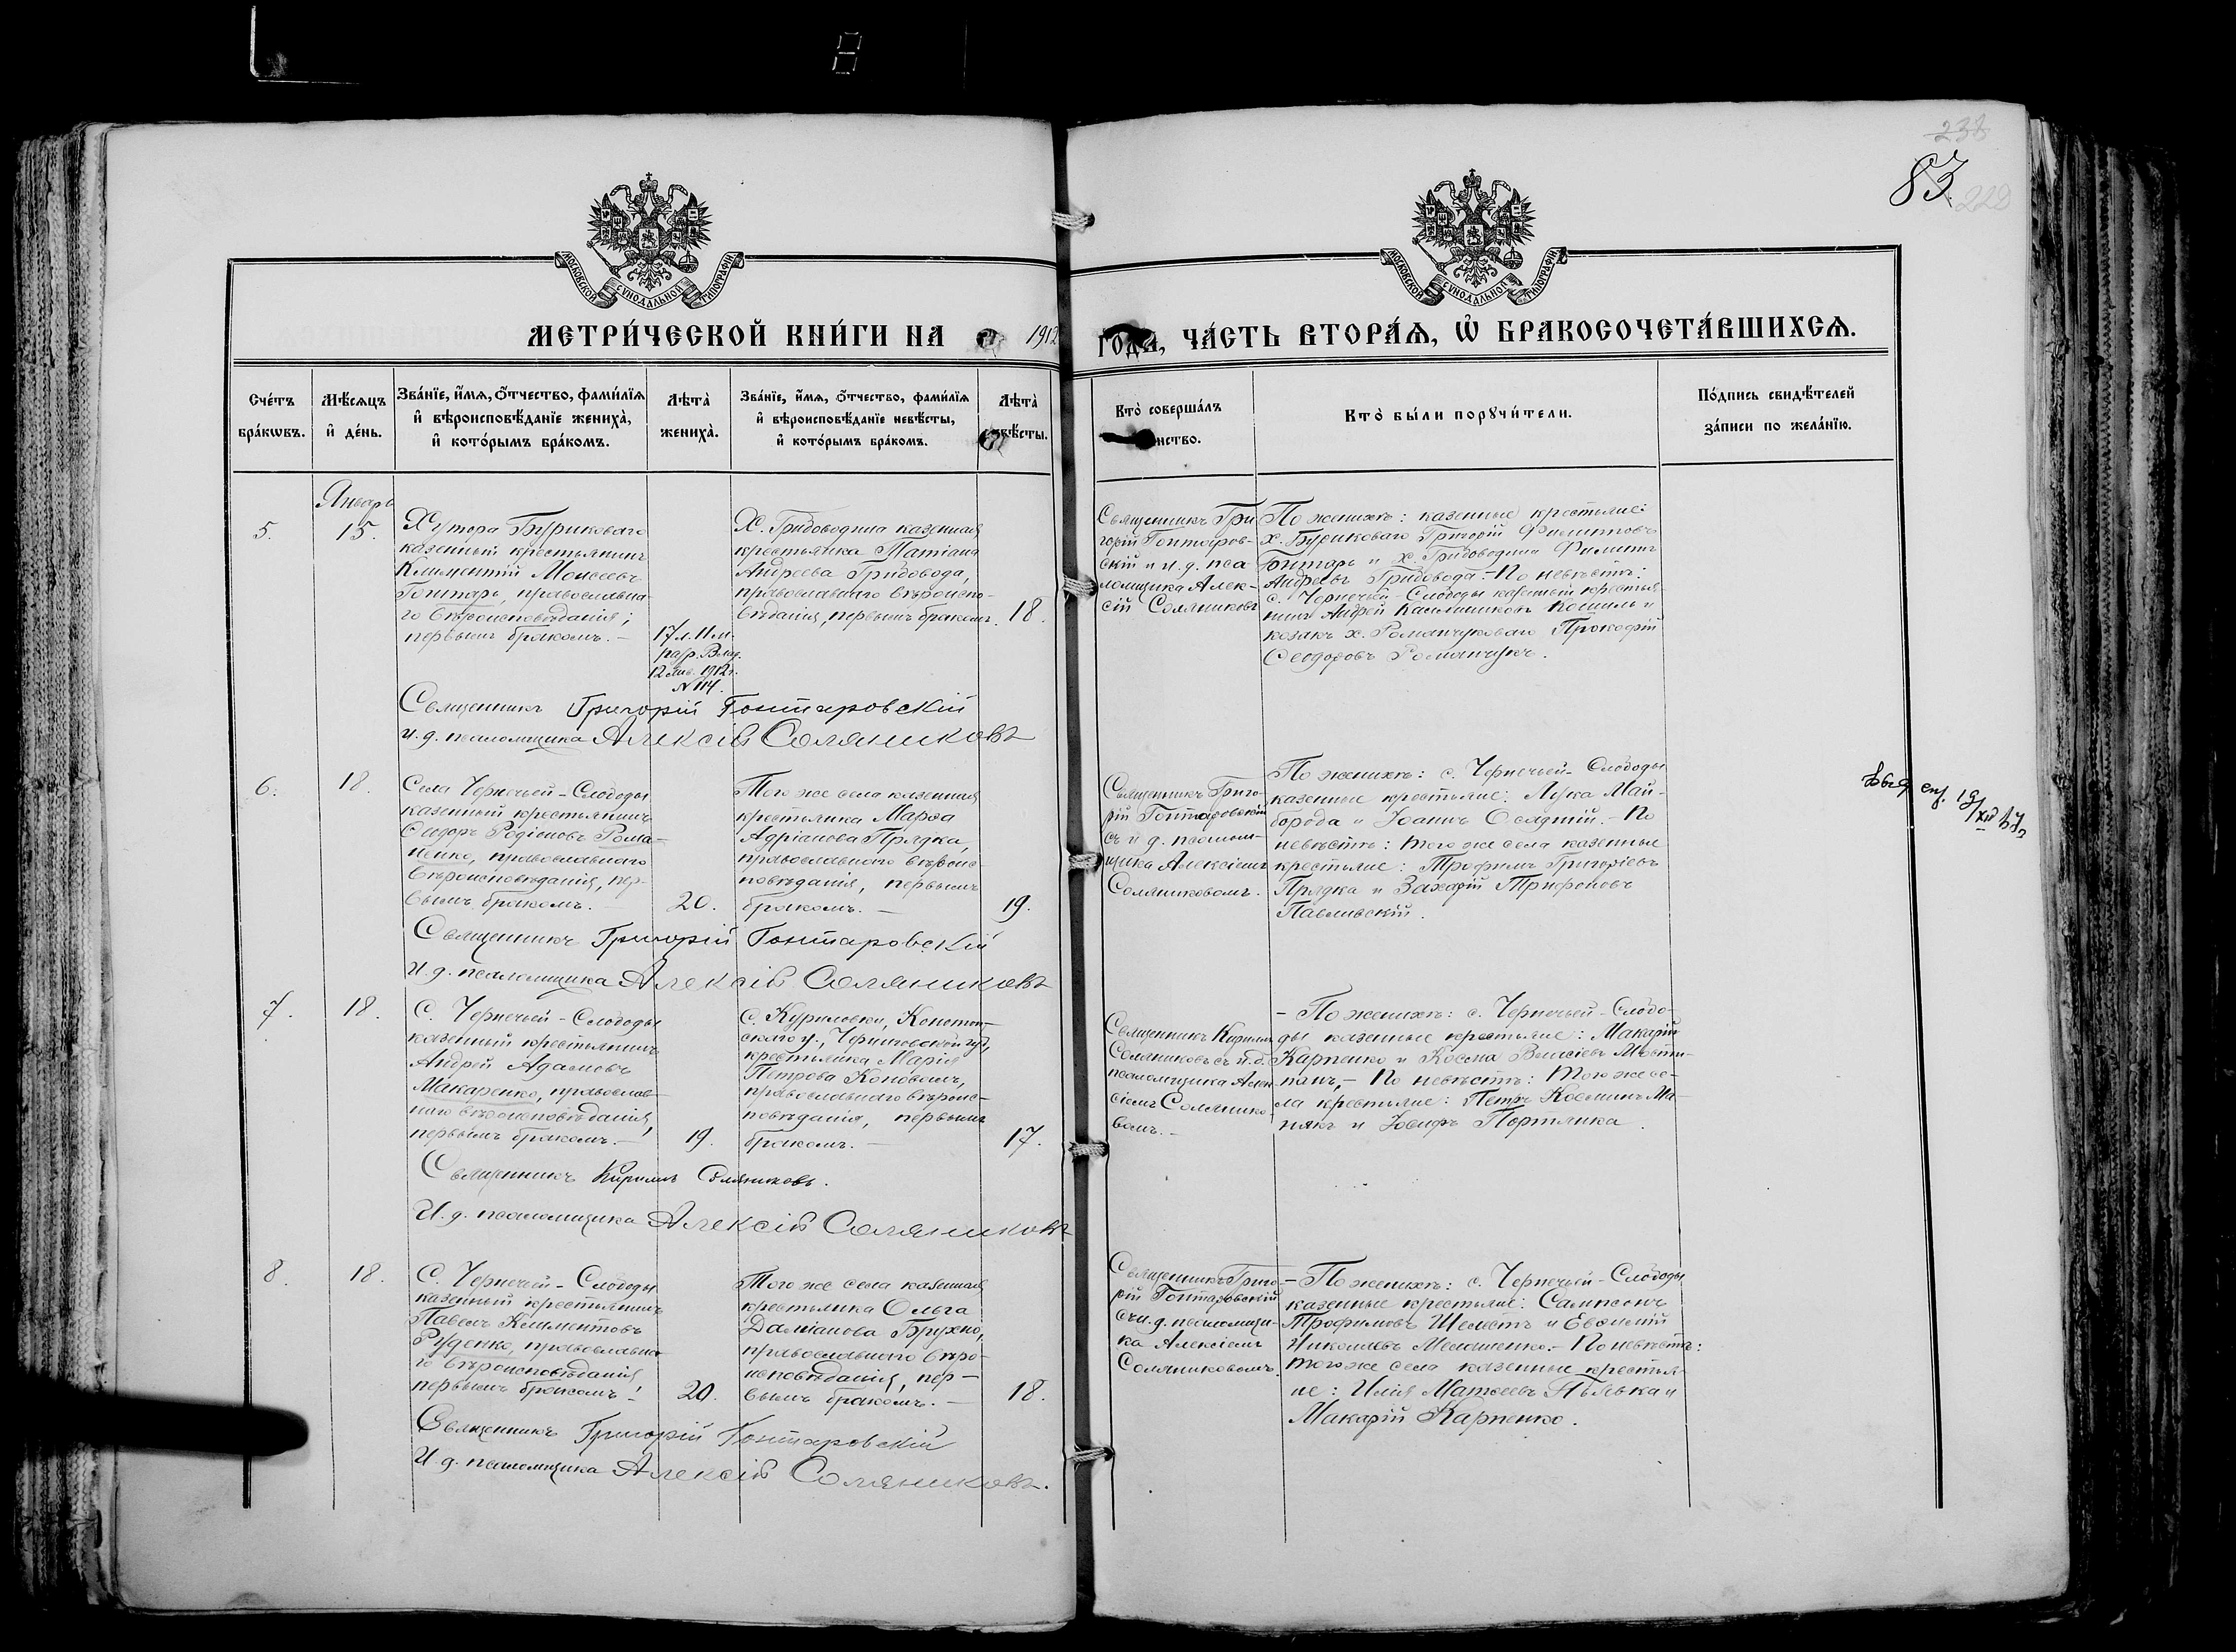 238
83
222
МОСКОВСКОЙ СѴНОДАЛЬНОЙ ТИПОГРАФІИ
МОСКОВСКОЙ СѴНОДАЛЬНОЙ ТИПОГРАФІИ
МЕТРИ́ЧЕСКОЙ КНИ́ГИ НА 1912
ГОДА, ЧА́СТЬ ВТОРА́Ѧ, Ѽ БРАКОСОЧЕТА́ВШИХСѦ.
Сче́тъ
бра́кѡвъ.
Мѣ́сѧцъ
и҆ де́нь.
Зва́нїе, и҆́мѧ, ѻ҆́тчество, фами́лїѧ
и҆ вѣроисповѣ́данїе жениха̀,
и҆ кото́рымъ бра́комъ.
Лѣта̀
жениха̀.
Зва́нїе, и҆́мѧ, ѻ҆́тчество, фами́лїѧ
и҆ вѣроисповѣ́данїе невѣ́сты,
и҆ кото́рымъ бра́комъ.
Лѣта̀
вѣ́сты.
Кто̀ соверша́лъ
нство.
Кто̀ бы́ли порꙋчи́тели.
По́дпись свидѣ́телей
за́писи по жела́нїю.
Январь
5.
15.
Хутора Бурикового
казенный крестьянинъ
Климентій Моисеевъ
Гонтарь, православна-
го вѣроисповѣданія;
первымъ бракомъ. —
17 л. 11 м.
разр. Влад.
12 Янв. 1912 г.
№ 114.
Х. Гридоводина казенная
крестьянка Татіана
Андреева Гридовода,
православнаго вѣроиспо-
вѣданія, первымъ бракомъ.
18.
Священникъ Гри
горій Гонтаров-
скій и и. д. пса
ломщика Алек-
сій Соляниковъ
По женихѣ: казенные крестьяне:
х. Бурикового Григорій Филиповъ
Гонтарь и х. Гридоводина Филипъ
Андреевъ Гридовода. - По невѣстѣ:
с. Чернечьей-Слободы казенный крестья-
нинъ Андрей Калинниковъ Кошиль и
козакъ х. Романчуковаго Прокофій
Ѳеодоровъ Романчукъ.
Священникъ Григорій Гонтаровскій
и. д. псаломщика Алексій Соляниковъ
6.
18.
Села Чернечьей-Слободы
казенный крестьянинъ
Сидоръ Родіоновъ Рома-
ненко, православнаго
вѣроисповѣданія, пер-
вымъ бракомъ. —
20.
Того же села казенная
крестьянка Марѳа
Адріанова Прядка,
православнаго вѣроис-
повѣданія, первымъ
бракомъ. —
19.
Священникъ Григо-
рій Гонтаровскій
съ и д. псалом-
щика Алексіемъ
Соляниковомъ.
По женихѣ: с. Чернечьей-Слободы
казенные крестьяне: Лука Май-
борода и Іоаннъ Осадчій. - По
невѣстѣ: того же села казенные
крестьяне: Трофимъ Григоріевъ
Прядка и Захарій Трифоновъ
Павливскій.
Священникъ Григорій Гонтаровскій
И. д. псаломщика Алексій Соляниковъ
7.
18.
С. Чернечьей-Слободы
казенный крестьянинъ
Андрей Адамовъ
Макаренко, православ-
наго вѣроисповѣданія,
первымъ бракомъ. —
19.
С. Куриловки, Конотоп-
скаго у., Черниговской губ,
крестьянка Марія
Петрова Коновалъ,
православнаго вѣроис-
повѣданія, первымъ
бракомъ. —
17.
Священникъ Кириллъ
Соляниковъ съ и. д.
псаломщика Алек-
сіемъ Солянико-
вомъ. —
- По женихѣ: с. Чернечьей-Слобо-
ды казенные крестьяне: Макарій
Карпенко и Косма
панъ, - По невѣстѣ: того же се-
ла крестьяне: Петръ Косминъ Ма-
някъ и Іосифъ Портянка.
Священникъ Кириллъ Соляниковъ.
И. д. псаломщика Алексій Соляниковъ
8.
18.
С. Чернечьей-Слободы
казенный крестьянинъ
Павелъ Климентовъ
Руденко, православна-
го вѣроисповѣданія
первымъ бракомъ. —
20.
Того же села казенная
крестьянка Ольга
Даміанова Брухно,
православнаго вѣро-
исповѣданія, пер-
вымъ бракомъ. —
18.
Священникъ Григо-
рій Гонтаровскій
съ и. д. псаломщи-
ка Алексіемъ
Соляниковомъ.
- По женихѣ: с. Чернечьей-Слободы
казенные крестьяне: Сампсонъ
Трофимовъ Шеметъ и Евѳимій
Николаевъ Мелашенко. - По невѣстѣ:
того же села казенные крестья-
не: Илія Матѳеевъ и
Макарій Карпенко.
Священникъ Григорій Гонтаровскій
И. д. псаломщика Алексій Соляниковъ.